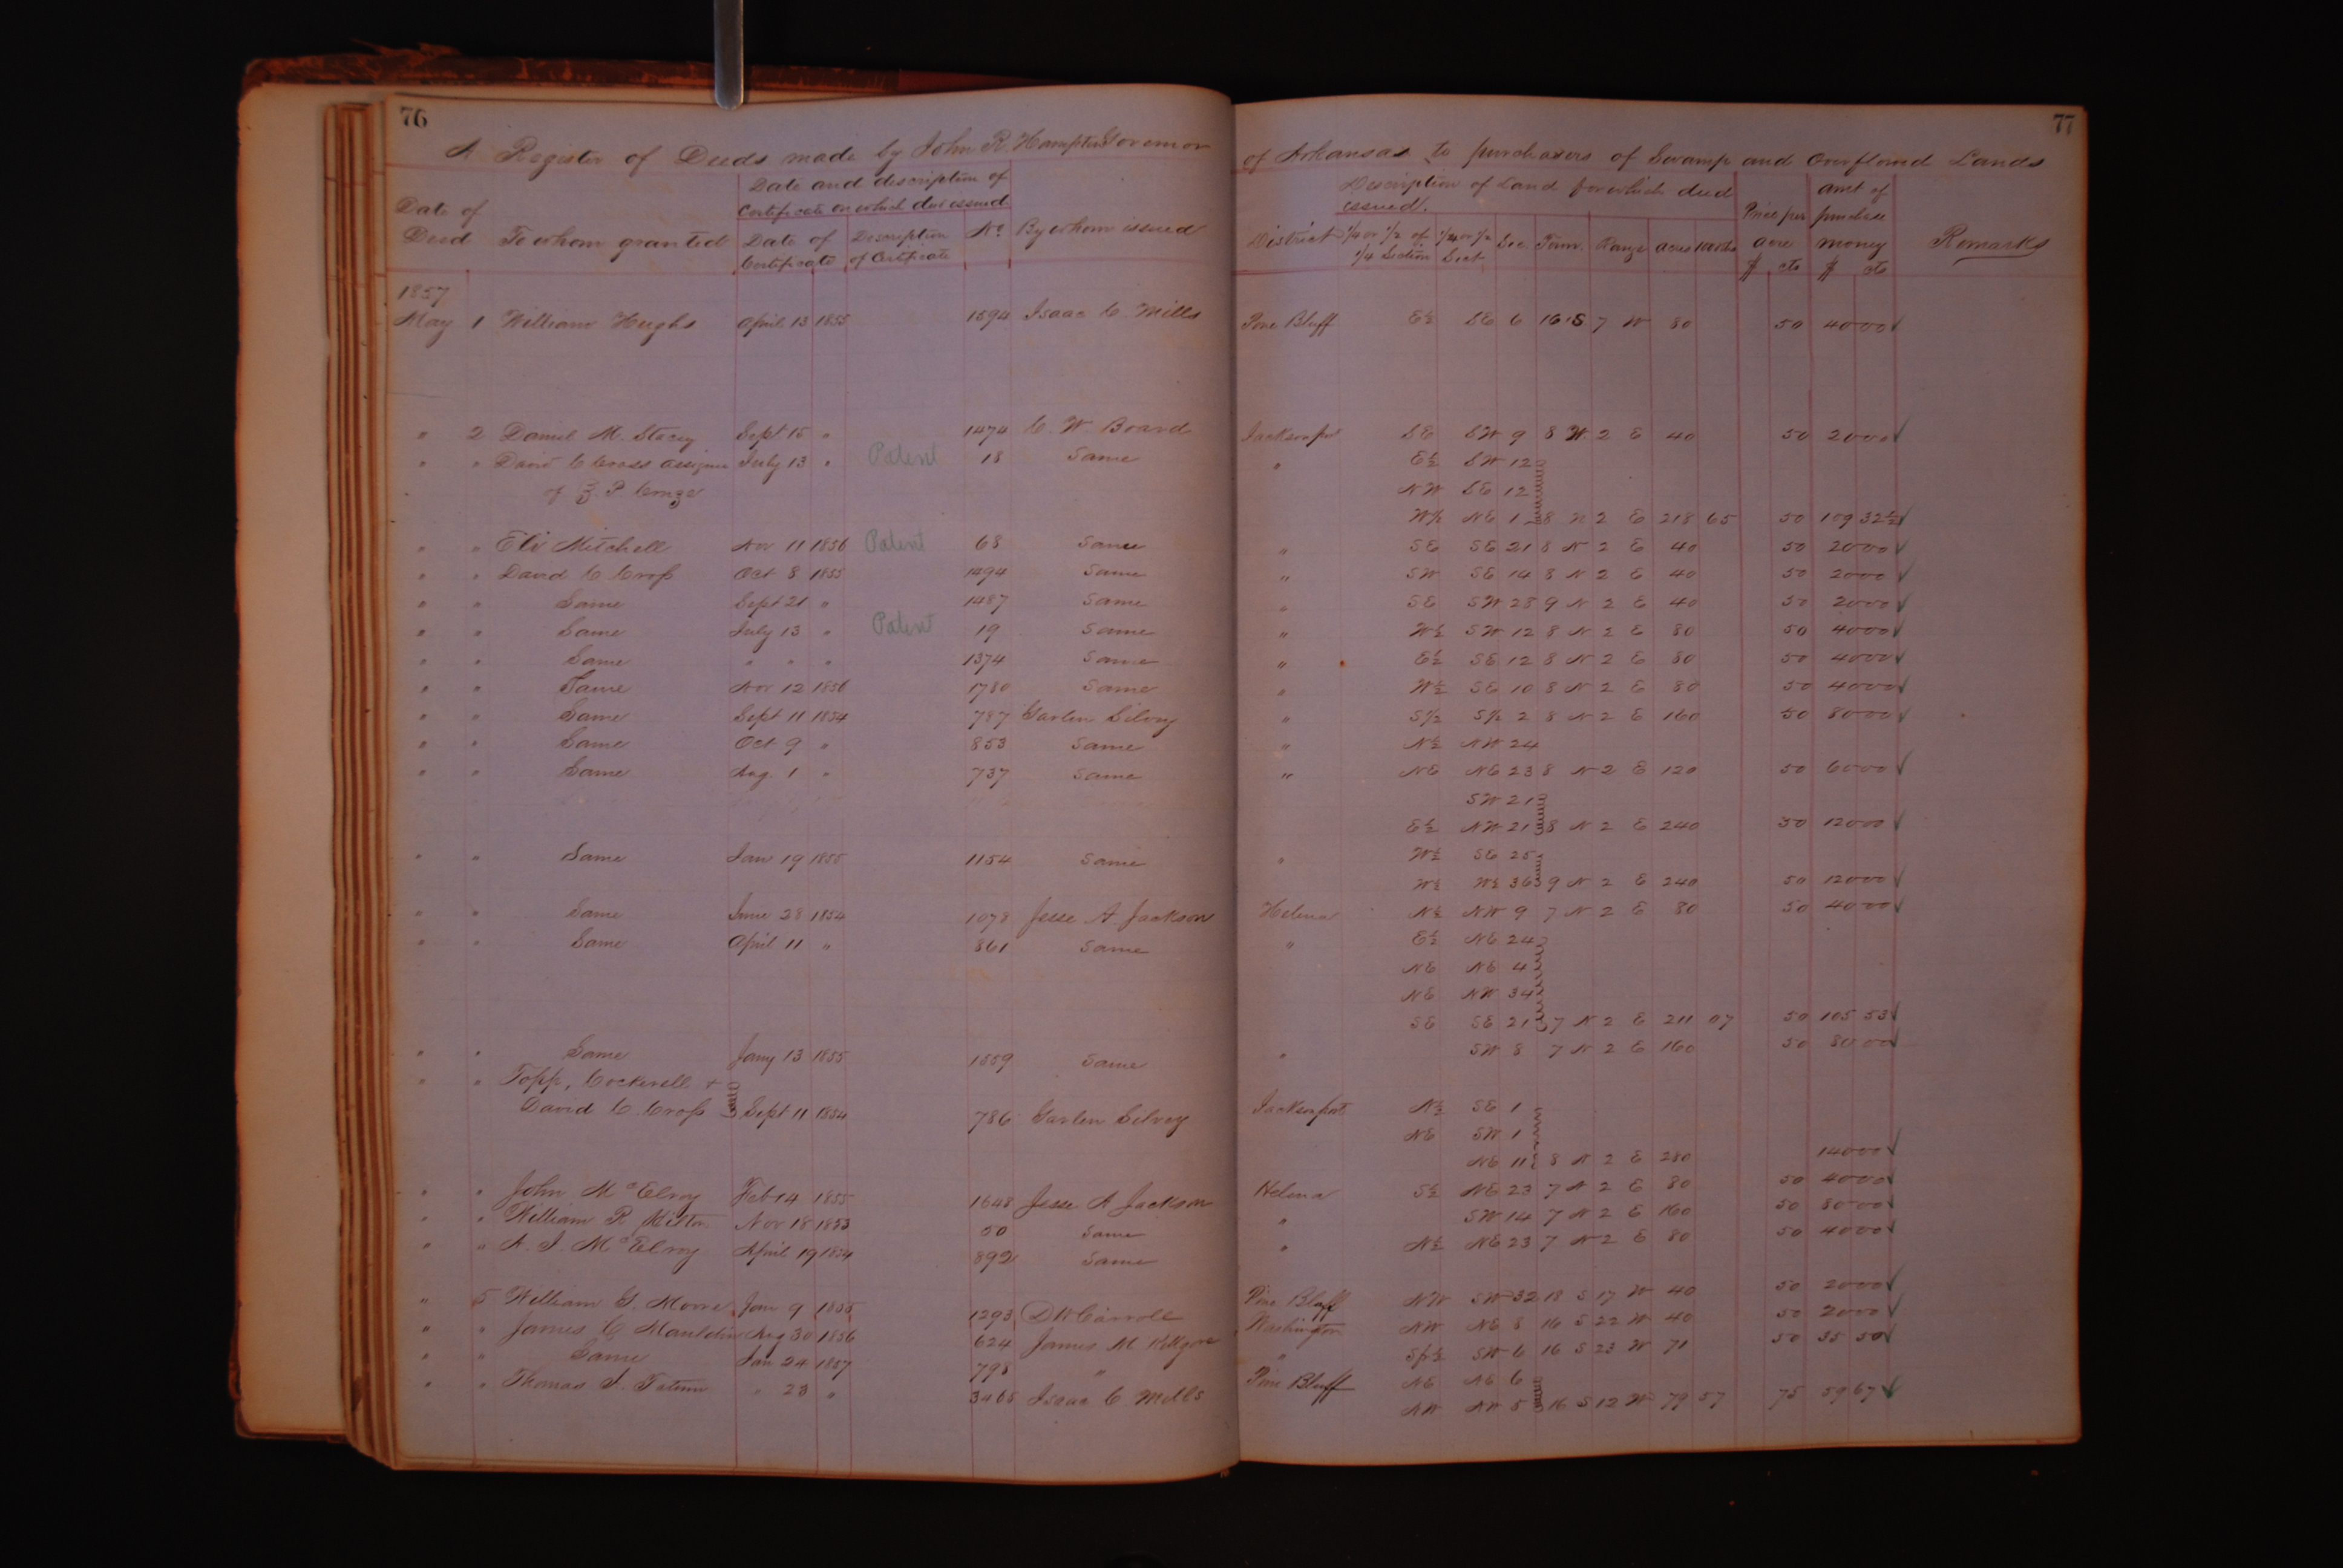 76
77
A Register of Deeds made by John R Hampton Governor of Arkansas to purchasers of Swamp and Overflowed Lands
Date of Deed
To whom granted
Date and description of Certificate on which deed issued
Date of Certificate
Description of Certificate
No.
By whom issued
Description of Land for which deed issued.
District
1/4 or 1/2 of 1/4 Section
1/4 or 1/2 Sect
Sec.
Town.
Range
acres
100ths
Price per acre $ cts
amt of purchase money $ cts
Remarks
1857
May 1 William Hughs April 13 1855 1594 Isaac C. Mills Pine Bluff E½ SE 6 16 S 7 W 80 50 40 00
" 2 Daniel M. Stacy Sept 15 " 1474 C. W. Board Jacksonpt SE SW 9 8 N 2 E 40 50 20 00
" " David C Cross assignee July 13 " Patent 18 Same " E½ SW 12
of Z. P. NW SE 12
W½ NE 12 8 N 2 E 218 65 50 109 32½
" " Eli Mitchell Nov 11 1856 Patent 68 Same " SE SE 21 8 N 2 E 40 50 20 00
" " David C Cross Oct 8 1855 1494 Same " SW SE 14 8 N 2 E 40 50 20 00
" " Same Sept 21 " 1487 Same " SE SW 28 9 N 2 E 40 50 20 00
" " Same July 13 " Patent 19 Same " W½ SW 12 8 N 2 E 80 50 40 00
" " Same " " " 1374 Same " E½ SE 12 8 N 2 E 80 50 40 00
" " Same Nov 12 1856 1780 Same " W½ SE 10 8 N 2 E 80 50 40 00
" " Same Sept 11 1854 787 Garlen Silvey " S½ S½ 2 8 N 2 E 160 50 80 00
" " Same Oct 9 " 853 Same " N½ NW 24
" " Same Aug. 1 " 737 Same " NE NE 23 8 N 2 E 120 50 60 00
SW 21
E½ NW 21 8 N 2 E 240 50 120 00
" " Same Jan 19 1855 1154 Same " W½ SE 25
W½ W½ 36 9 N 2 E 240 50 120 00
" " Same June 28 1854 1078 Jesse A. Jackson Helena N½ NW 9 7 N 2 E 80 50 40 00
" " Same April 11 " 861 Same " E½ NE 24
NE NE 4
NE NW 34
SE SE 21 7 N 2 E 211 07 50 105 53
" " Same Jany 13 1855 1559 Same " SW 8 7 N 2 E 160 50 80 00
" " Topp, Cockerell +
David C. Cross Sept 11 1854 786 Garlen Silvey Jacksonport N½ SE 1
NE SW 1
NE 11 8 N 2 E 280 140 00
" " John McElroy Feb 14 1855 1648 Jesse A Jackson Helena S½ NE 23 7 N 2 E 80 50 40 00
" " William R Nov 18 1853 50 Same " SW 14 7 N 2 E 160 50 80 00
" " A. J. McElroy April 19 1854 892 Same " N½ NE 23 7 N 2 E 80 50 40 00
" 5 William G. Moore Jan 9 1855 1293 D W Carroll Pine Bluff NW SW 32 18 S 17 W 40 50 20 00
" " James C Mauldin Aug 30 1856 624 James M Kilgore Washington NW NE 8 16 S 22 W 40 50 20 00
" " Same Jan 24 1857 798 " " Sfr½ SW 6 16 S 23 W 71 50 35 50
" " Thomas J. Tatum " 28 " 3465 Isaac C Mills Pine Bluff NE NE 6
NW NW 5 16 S 12 W 79 57 75 59 67